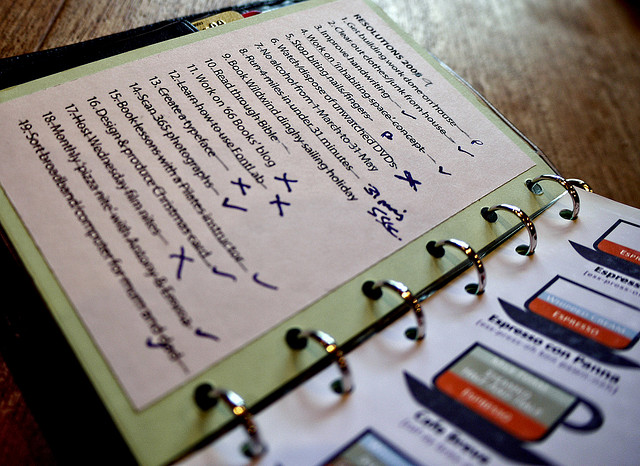 RESOLUTIONS 2008
1. Get building work done on house
2. Clear out clothes/junk from house
3. Improve handwriting
4. Work on 'inhabiting space' concept
5. Stop biting nails/fingers P
6. Watch/dispose of unwatched DVDs
7. No alcohol from 1 March to 31 May
8. Run 4 miles in under 31 minutes 31 mins
9. Book Wildwind dinghy sailing holiday
10. Read through Bible
11. Work on '66 books' blog
12. Learn how to use
13. Create a typeface
14. Scan 365 photographs
15. Book lessons with a Pilates instructor
16. Design & produce Christmas card
17. Host Wednesday film nites
18. Monthly 'pizza nite' with Antony & Emma
19. Sort broadband/computer for mum and dad
Espresso
Espresso
WHIPPED CREAM
ESPRESSO
Espresso con Panna
ESPRESSO
Cafe Breve